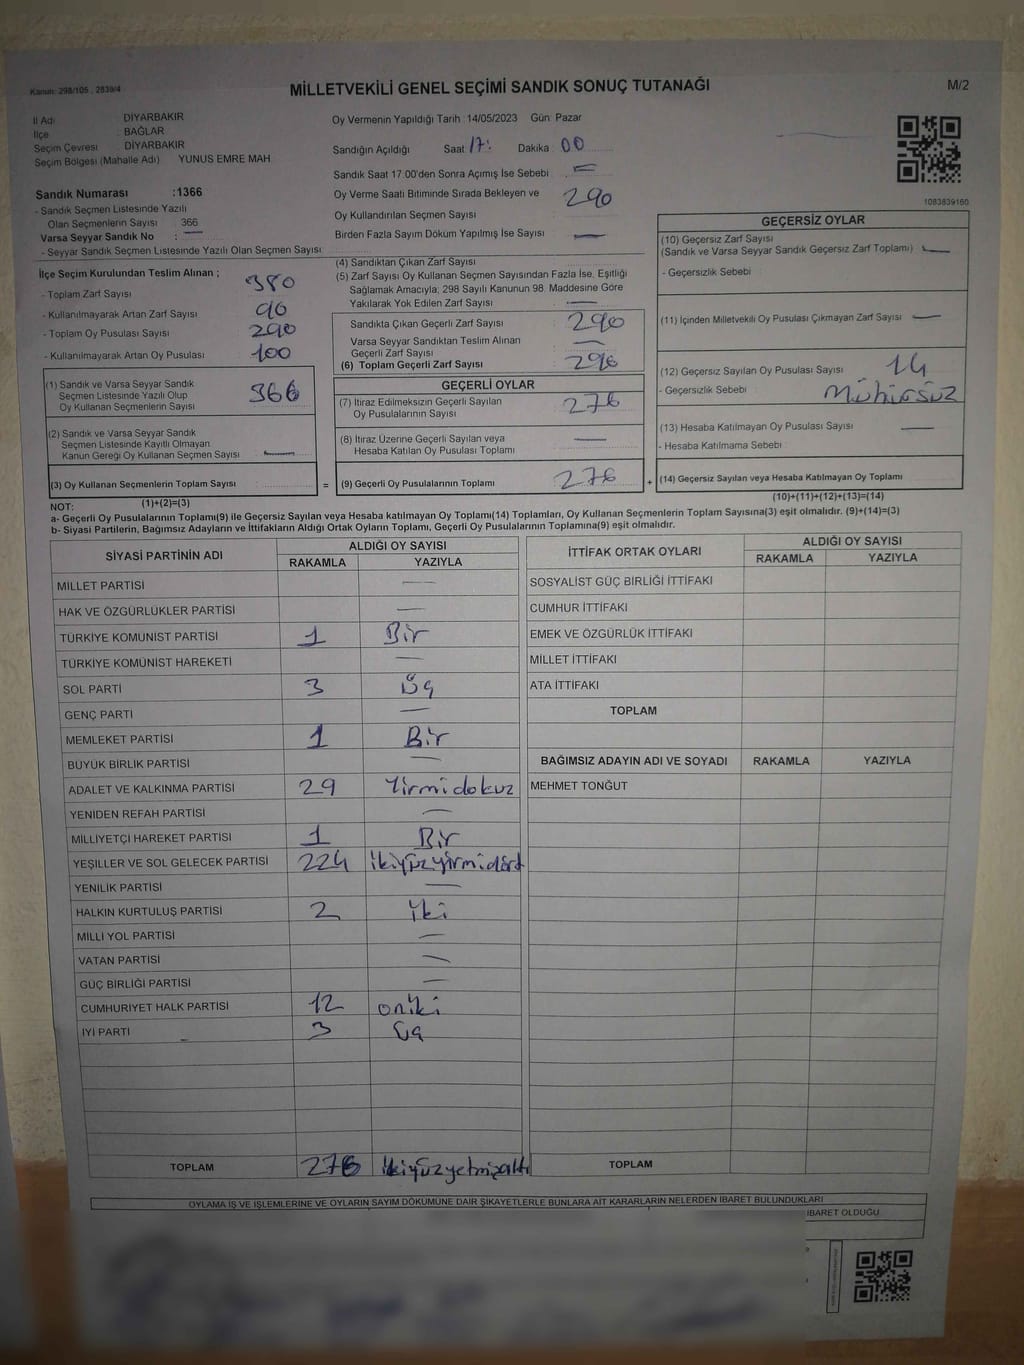 Kanun: 298/105 , 2839/4
MİLLETVEKİLİ GENEL SEÇİMİ SANDIK SONUÇ TUTANAĞI
M/2
İl Adı : DİYARBAKIR
İlçe : BAĞLAR
Seçim Çevresi : DİYARBAKIR
Seçim Bölgesi (Mahalle Adı) YUNUS EMRE MAH.
Sandık Numarası :1366
- Sandık Seçmen Listesinde Yazılı
Olan Seçmenlerin Sayısı : 366
Varsa Seyyar Sandık No : —
- Seyyar Sandık Seçmen Listesinde Yazılı Olan Seçmen Sayısı:
Oy Vermenin Yapıldığı Tarih :14/05/2023 Gün: Pazar
Sandığın Açıldığı Saat 17: Dakika : 00
Sandık Saat 17:00'den Sonra Açımış İse Sebebi : —
Oy Verme Saati Bitiminde Sırada Bekleyen ve
Oy Kullandırılan Seçmen Sayısı 290
Birden Fazla Sayım Döküm Yapılmış İse Sayısı —
1083839160
İlçe Seçim Kurulundan Teslim Alınan ;
- Toplam Zarf Sayısı : 380
- Kullanılmayarak Artan Zarf Sayısı : 90
- Toplam Oy Pusulası Sayısı : 290
- Kullanılmayarak Artan Oy Pusulası : 100
(1) Sandık ve Varsa Seyyar Sandık
Seçmen Listesinde Yazılı Olup
Oy Kullanan Seçmenlerin Sayısı 366
(2) Sandık ve Varsa Seyyar Sandık
Seçmen Listesinde Kayıtlı Olmayan
Kanun Gereği Oy Kullanan Seçmen Sayısı : —
(3) Oy Kullanan Seçmenlerin Toplam Sayısı =
(4) Sandıktan Çıkan Zarf Sayısı :
(5) Zarf Sayısı Oy Kullanan Seçmen Sayısından Fazla İse, Eşitliği
Sağlamak Amacıyla; 298 Sayılı Kanunun 98. Maddesine Göre
Yakılarak Yok Edilen Zarf Sayısı : —
Sandıkta Çıkan Geçerli Zarf Sayısı : 290
Varsa Seyyar Sandıktan Teslim Alınan
Geçerli Zarf Sayısı : —
(6) Toplam Geçerli Zarf Sayısı : 290
GEÇERLİ OYLAR
(7) İtiraz Edilmeksizin Geçerli Sayılan
Oy Pusulalarının Sayısı : 276
(8) İtiraz Üzerine Geçerli Sayılan veya
Hesaba Katılan Oy Pusulası Toplamı : —
(9) Geçerli Oy Pusulalarının Toplamı : 276 +
GEÇERSİZ OYLAR
(10) Geçersiz Zarf Sayısı
(Sandık ve Varsa Seyyar Sandık Geçersiz Zarf Toplamı) : —
- Geçersizlik Sebebi :
(11) İçinden Milletvekili Oy Pusulası Çıkmayan Zarf Sayısı : —
(12) Geçersiz Sayılan Oy Pusulası Sayısı : 14
- Geçersizlik Sebebi : Mühürsüz
(13) Hesaba Katılmayan Oy Pusulası Sayısı : —
- Hesaba Katılmama Sebebi :
(14) Geçersiz Sayılan veya Hesaba Katılmayan Oy Toplamı
NOT: (1)+(2)=(3) (10)+(11)+(12)+(13)=(14)
a- Geçerli Oy Pusulalarının Toplamı(9) ile Geçersiz Sayılan veya Hesaba katılmayan Oy Toplamı(14) Toplamları, Oy Kullanan Seçmenlerin Toplam Sayısına(3) eşit olmalıdır. (9)+(14)=(3)
b- Siyasi Partilerin, Bağımsız Adayların ve İttifakların Aldığı Ortak Oyların Toplamı, Geçerli Oy Pusulalarının Toplamına(9) eşit olmalıdır.
SİYASİ PARTİNİN ADI ALDIĞI OY SAYISI
RAKAMLA YAZIYLA
MİLLET PARTİSİ —
HAK VE ÖZGÜRLÜKLER PARTİSİ —
TÜRKİYE KOMÜNİST PARTİSİ 1 Bir
TÜRKİYE KOMÜNİST HAREKETİ —
SOL PARTİ 3 Üç
GENÇ PARTİ —
MEMLEKET PARTİSİ 1 Bir
BÜYÜK BİRLİK PARTİSİ —
ADALET VE KALKINMA PARTİSİ 29 Yirmidokuz
YENİDEN REFAH PARTİSİ —
MİLLİYETÇİ HAREKET PARTİSİ 1 Bir
YEŞİLLER VE SOL GELECEK PARTİSİ 224 ikiyüzyirmidört
YENİLİK PARTİSİ —
HALKIN KURTULUŞ PARTİSİ 2 iki
MİLLİ YOL PARTİSİ —
VATAN PARTİSİ —
GÜÇ BİRLİĞİ PARTİSİ —
CUMHURİYET HALK PARTİSİ 12 oniki
İYİ PARTİ 3 Üç
TOPLAM 276 ikiyüzyetmişaltı
İTTİFAK ORTAK OYLARI ALDIĞI OY SAYISI
RAKAMLA YAZIYLA
SOSYALİST GÜÇ BİRLİĞİ İTTİFAKI
CUMHUR İTTİFAKI
EMEK VE ÖZGÜRLÜK İTTİFAKI
MİLLET İTTİFAKI
ATA İTTİFAKI
TOPLAM
BAĞIMSIZ ADAYIN ADI VE SOYADI RAKAMLA YAZIYLA
MEHMET TONĞUT
TOPLAM
OYLAMA İŞ VE İŞLEMLERİNE VE OYLARIN SAYIM DÖKÜMÜNE DAİR ŞİKAYETLERLE BUNLARA AİT KARARLARIN NELERDEN İBARET BULUNDUKLARI
İBARET OLDUĞU